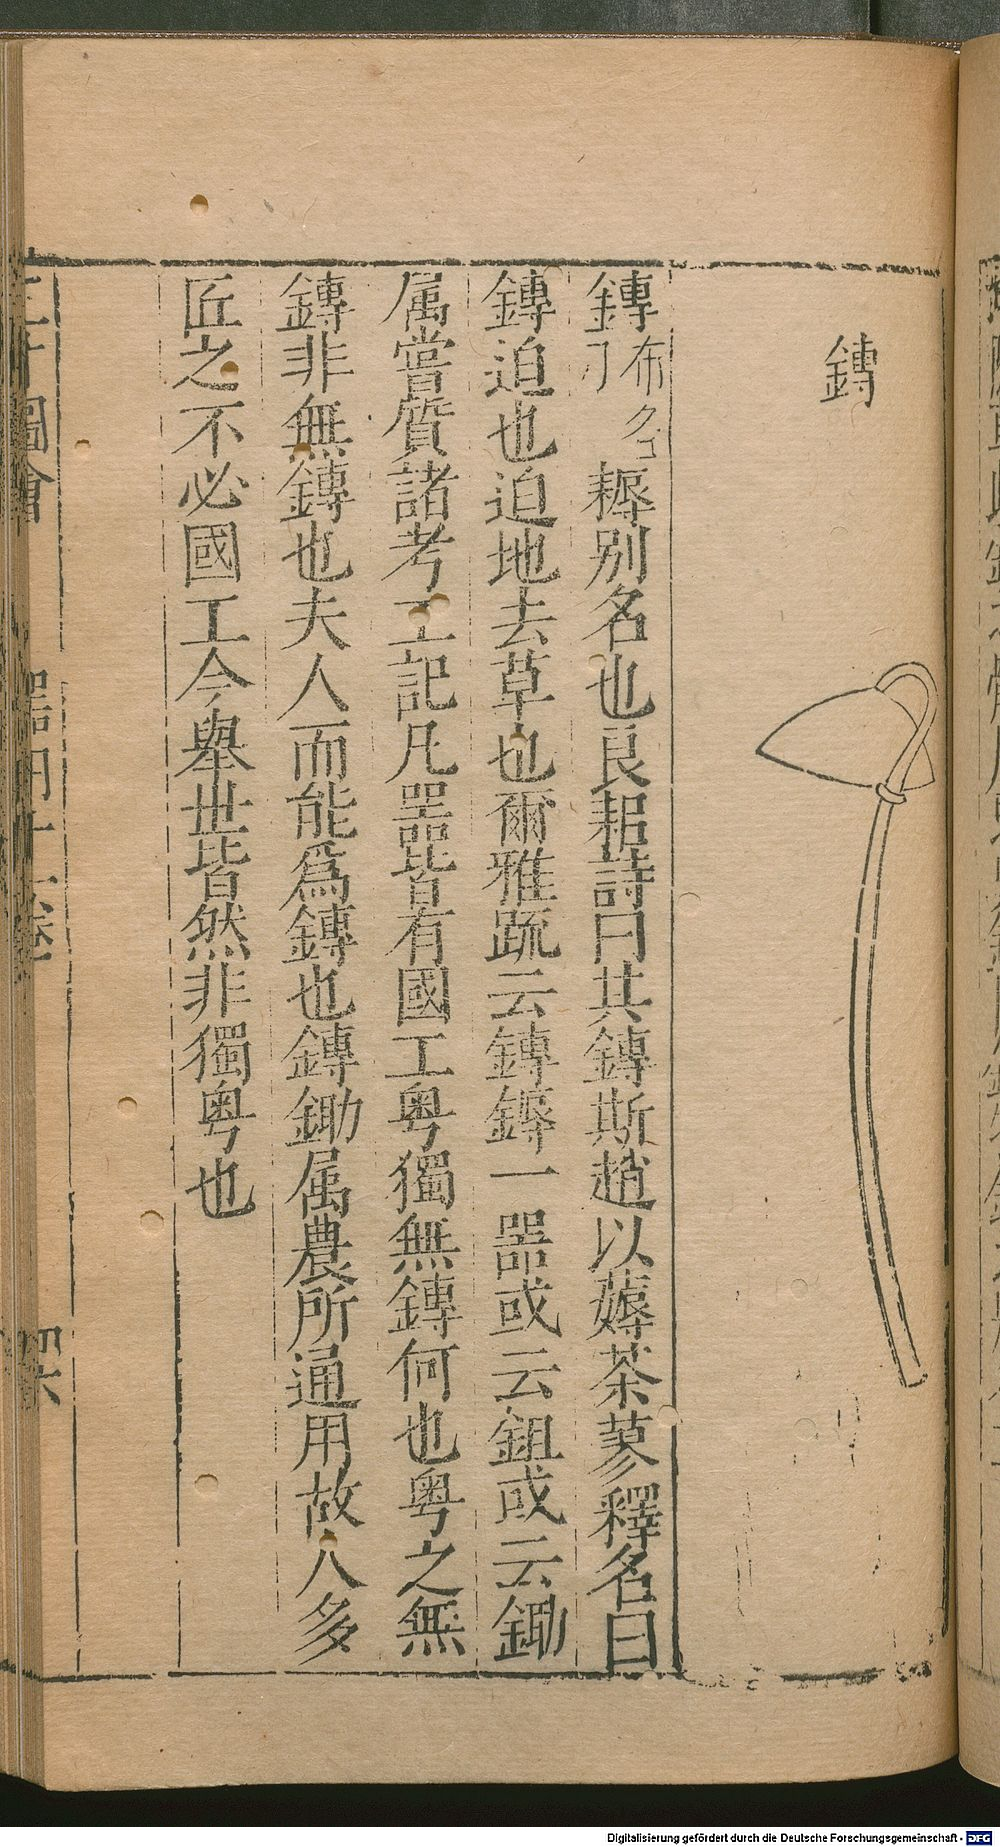 鎛
鎛布各耨别名也良耜詩曰其鎛斯趙以薅荼蓼釋名曰
鎛迫也迫地去草也爾雅疏云鎛鎒一器或云鉏或云鋤
属嘗質諸考工記凡器皆有國工粤獨無鎛何也粤之無
鎛非無鎛也夫人而能爲鎛也鎛鋤属農所通用故人多
匠之不必國工今舉世皆然非獨粤也
圖會
器用十一卷
Digitalisierung gefördert durch die Deutsche Forschungsgemeinschaft - DFG